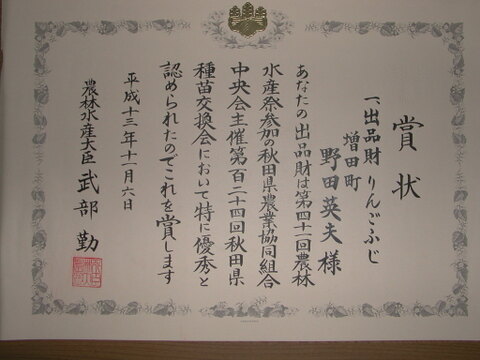 賞状
一、出品財 りんごふじ
増田町
野田英夫様
あなたの出品財は第四十一回農林
水産祭参加の秋田県農業協同組合
中央会主催第百二十四回秋田県
種苗交換会において特に優秀と
認められたのでこれを賞します
平成十三年十一月六日
農林水産大臣 武部勤